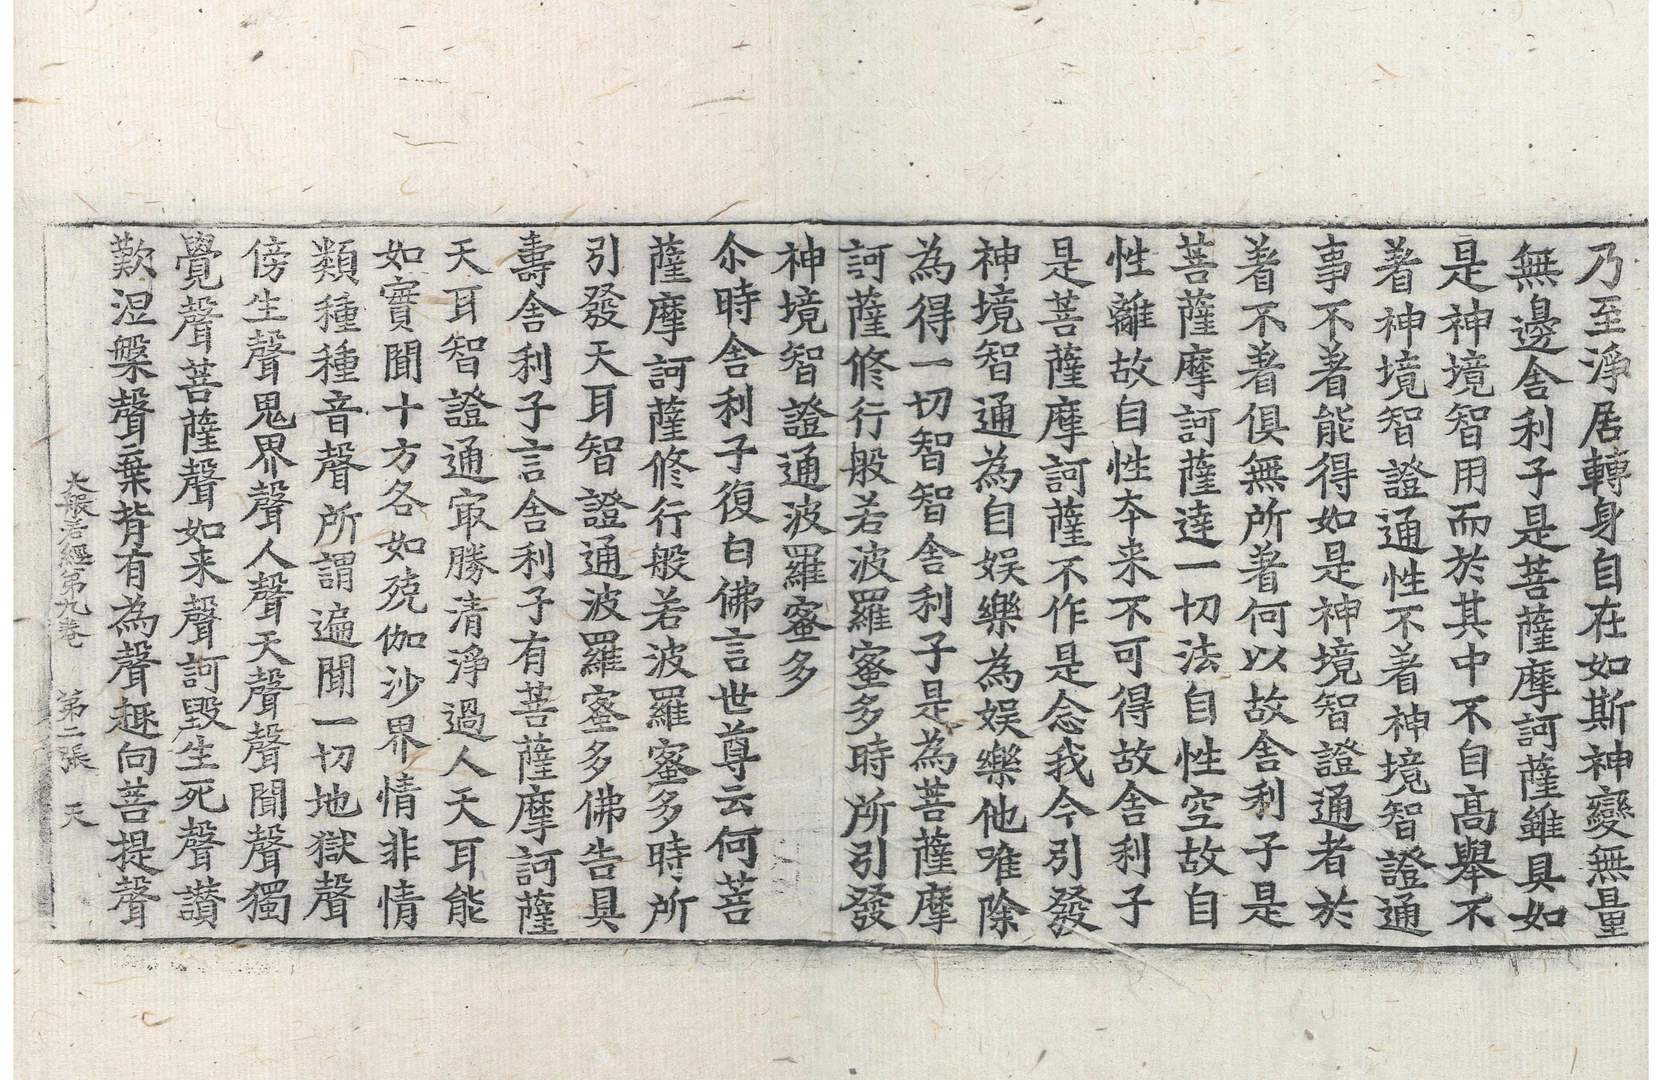 乃至淨居轉身自在如斯神變無量
無邊舍利子是菩薩摩訶薩雖具如
是神境智用而於其中不自高舉不
著神境智證通性不著神境智證通
事不著能得如是神境智證通者於
著不著俱無所著何以故舍利子是
菩薩摩訶薩達一切法自性空故自
性離故自性本来不可得故舍利子
是菩薩摩訶薩不作是念我今引發
神境智通為自娱樂為娱樂他唯除
為得一切智智舍利子是為菩薩摩
訶薩修行般若波羅蜜多時所引發
神境智證通波羅蜜多
尒時舍利子復白佛言世尊云何菩
薩摩訶薩修行般若波羅蜜多時所
引發天耳智證通波羅蜜多佛告具
壽舍利子言舍利子有菩薩摩訶薩
天耳智證通㝡勝清淨過人天耳能
如實聞十方各如殑伽沙界情非情
類種種音聲所謂遍聞一切地獄聲
傍生聲鬼界聲人聲天聲聲聞聲獨
覺聲菩薩聲如来聲訶毀生死聲讃
歎涅槃聲棄背有為聲趣向菩提聲
大般若經第九卷　第二張　天